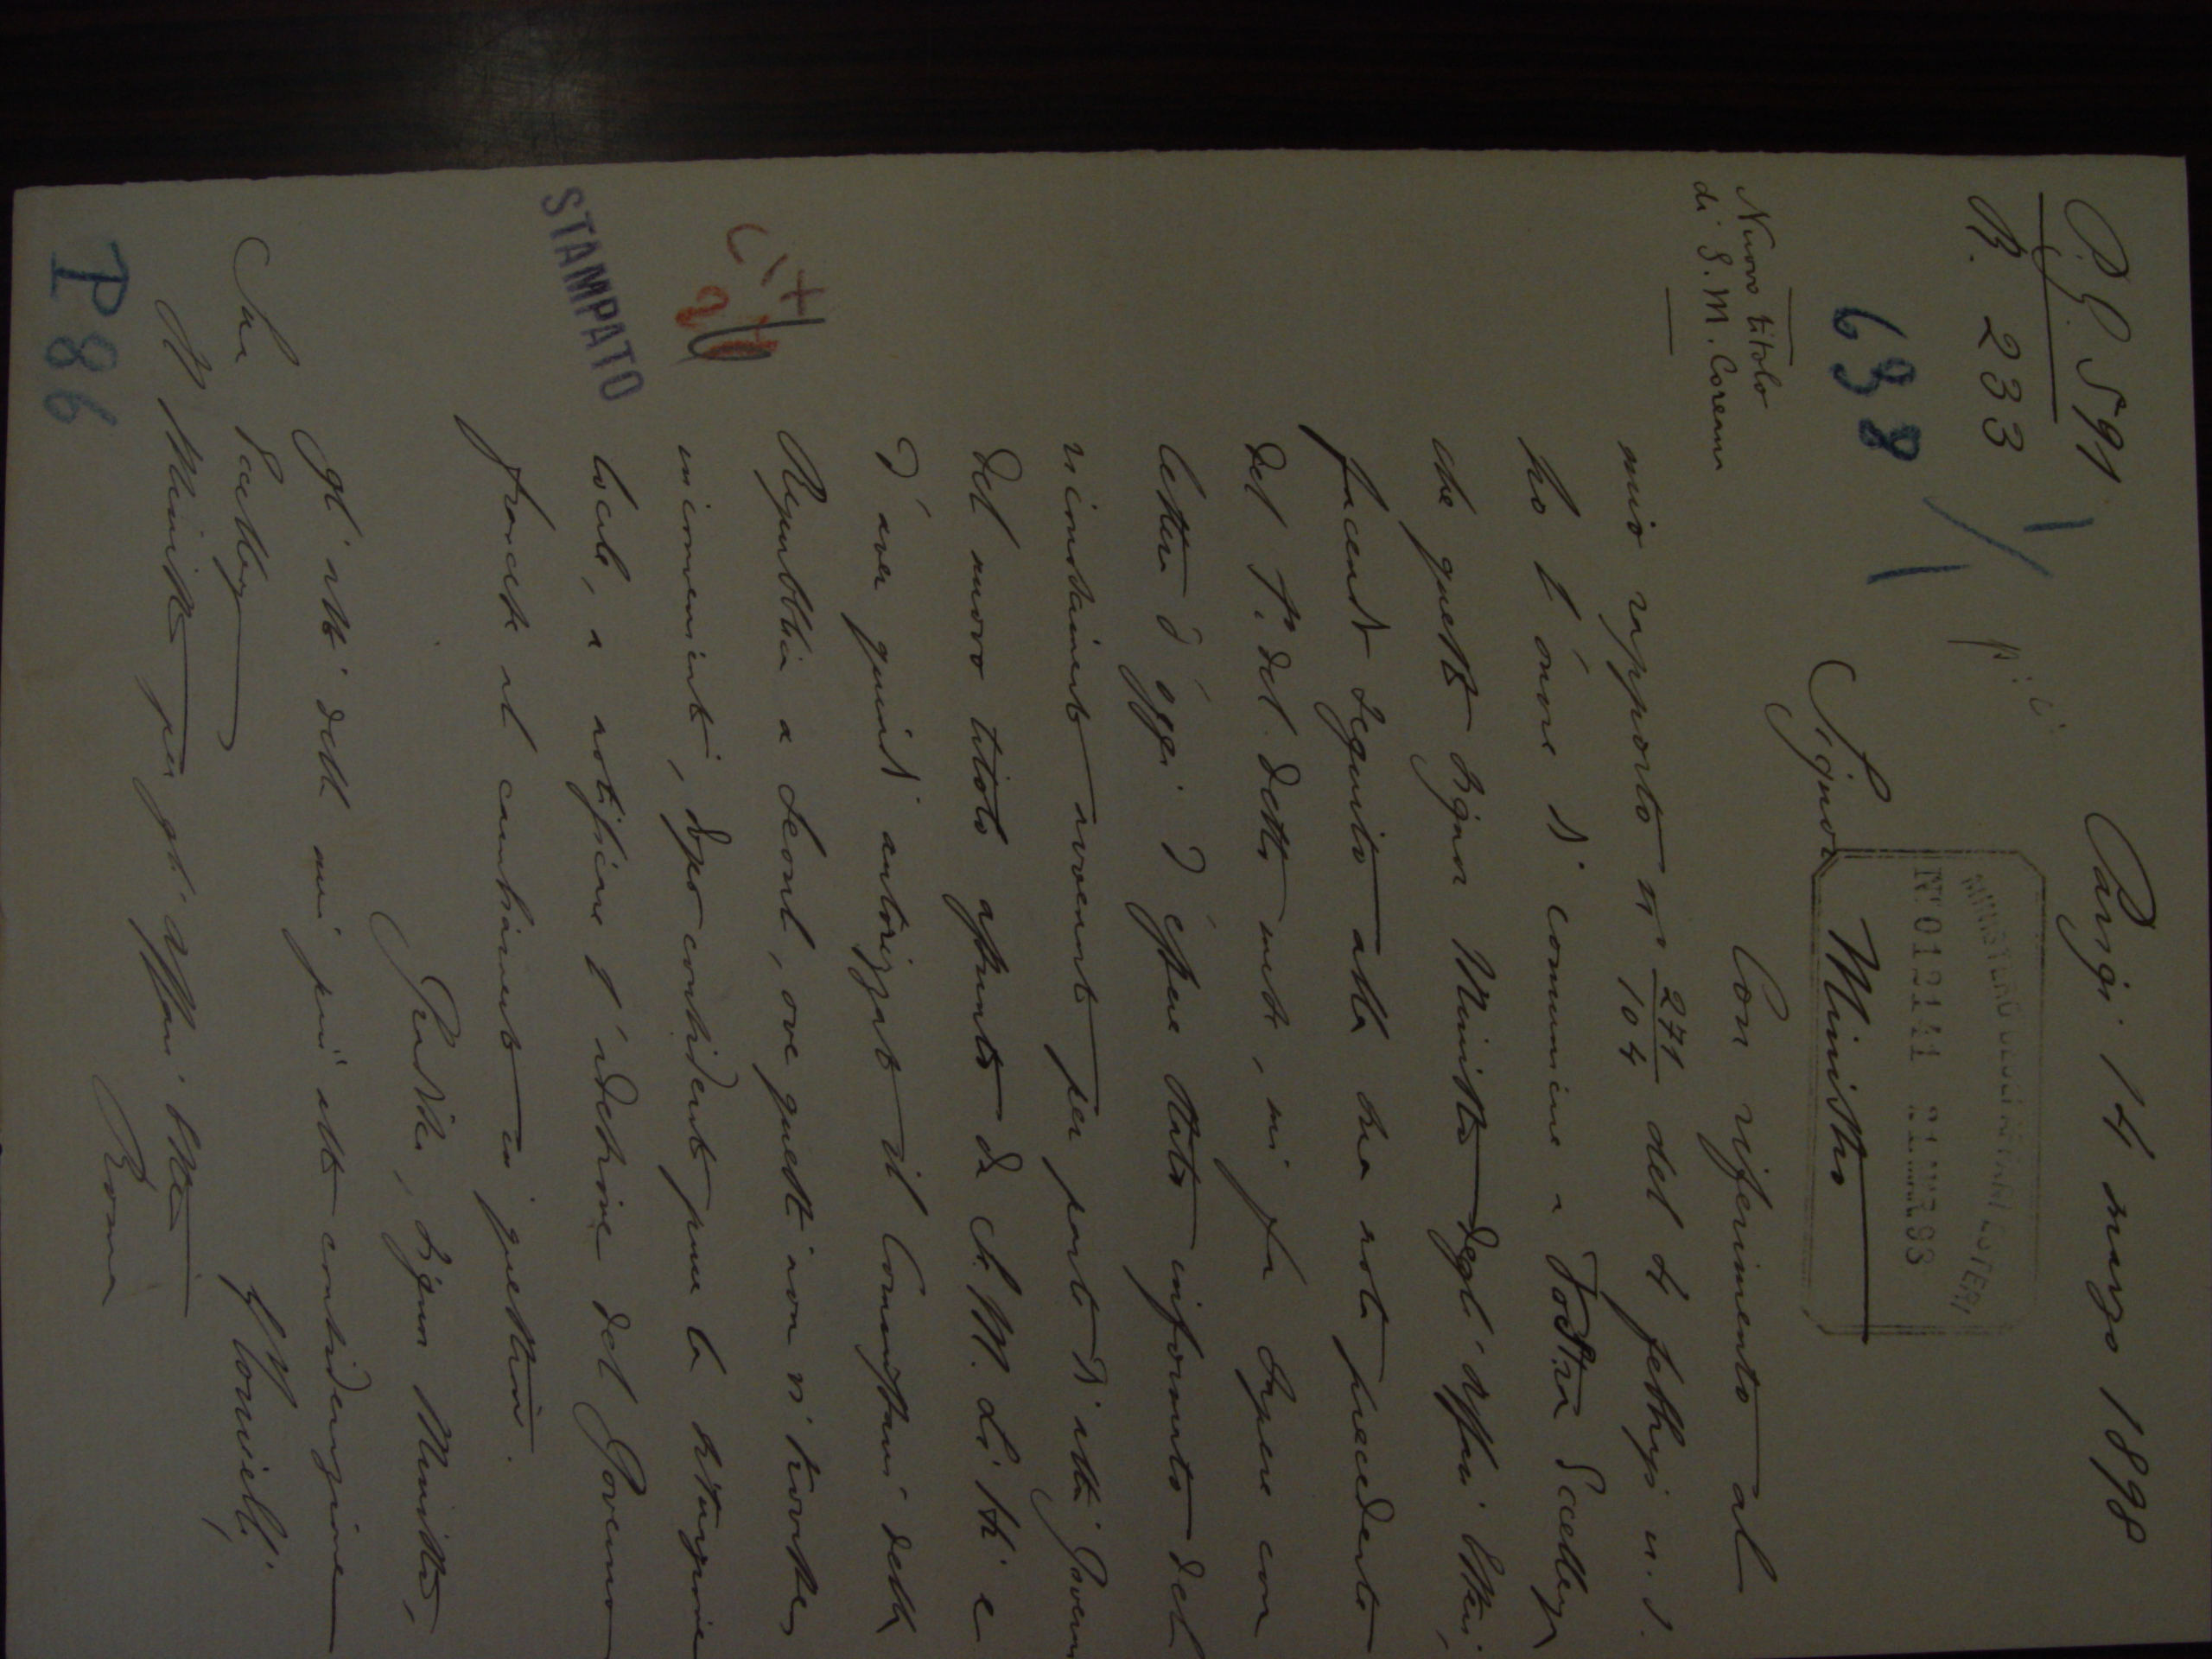 P.G. 591
R. 233
Parigi 14 marzo 1898
638
MINISTERO DEGLI AFFARI ESTERI
N° 012141 21 MAR. 98
Nuovo titolo
di S.M. Coreana
Signor Ministro
Con riferimento al
mio rapporto n° 271/104 del 4 febbrjo u.s.
ho l'onore di comunicare a Vostra Eccellenza
che questo Signor Ministro degli Affari Esteri,
facendo seguito alla sua nota precedente
del detto mese, mi fa sapere con
lettera d'oggi d'essere stato informato del
riconoscimento avvenuto per parte di Governi
del nuovo titolo assunto da S.M. Li Hi e
d'aver quindi autorizzato il Commissario della
Repubblica a Seoul, ove questi non vi trovasse
inconvenienti, dopo considerata pure la situazione
locale, a notificare l'adesione del Governo
francese al cambiamento in questione.
Gradisca, Signor Ministro,
gli atti della mia più alta considerazione
G Tornielli
STAMPATO
Sua Eccellenza
Il Ministro per gli Affari Esteri
Roma
P 86